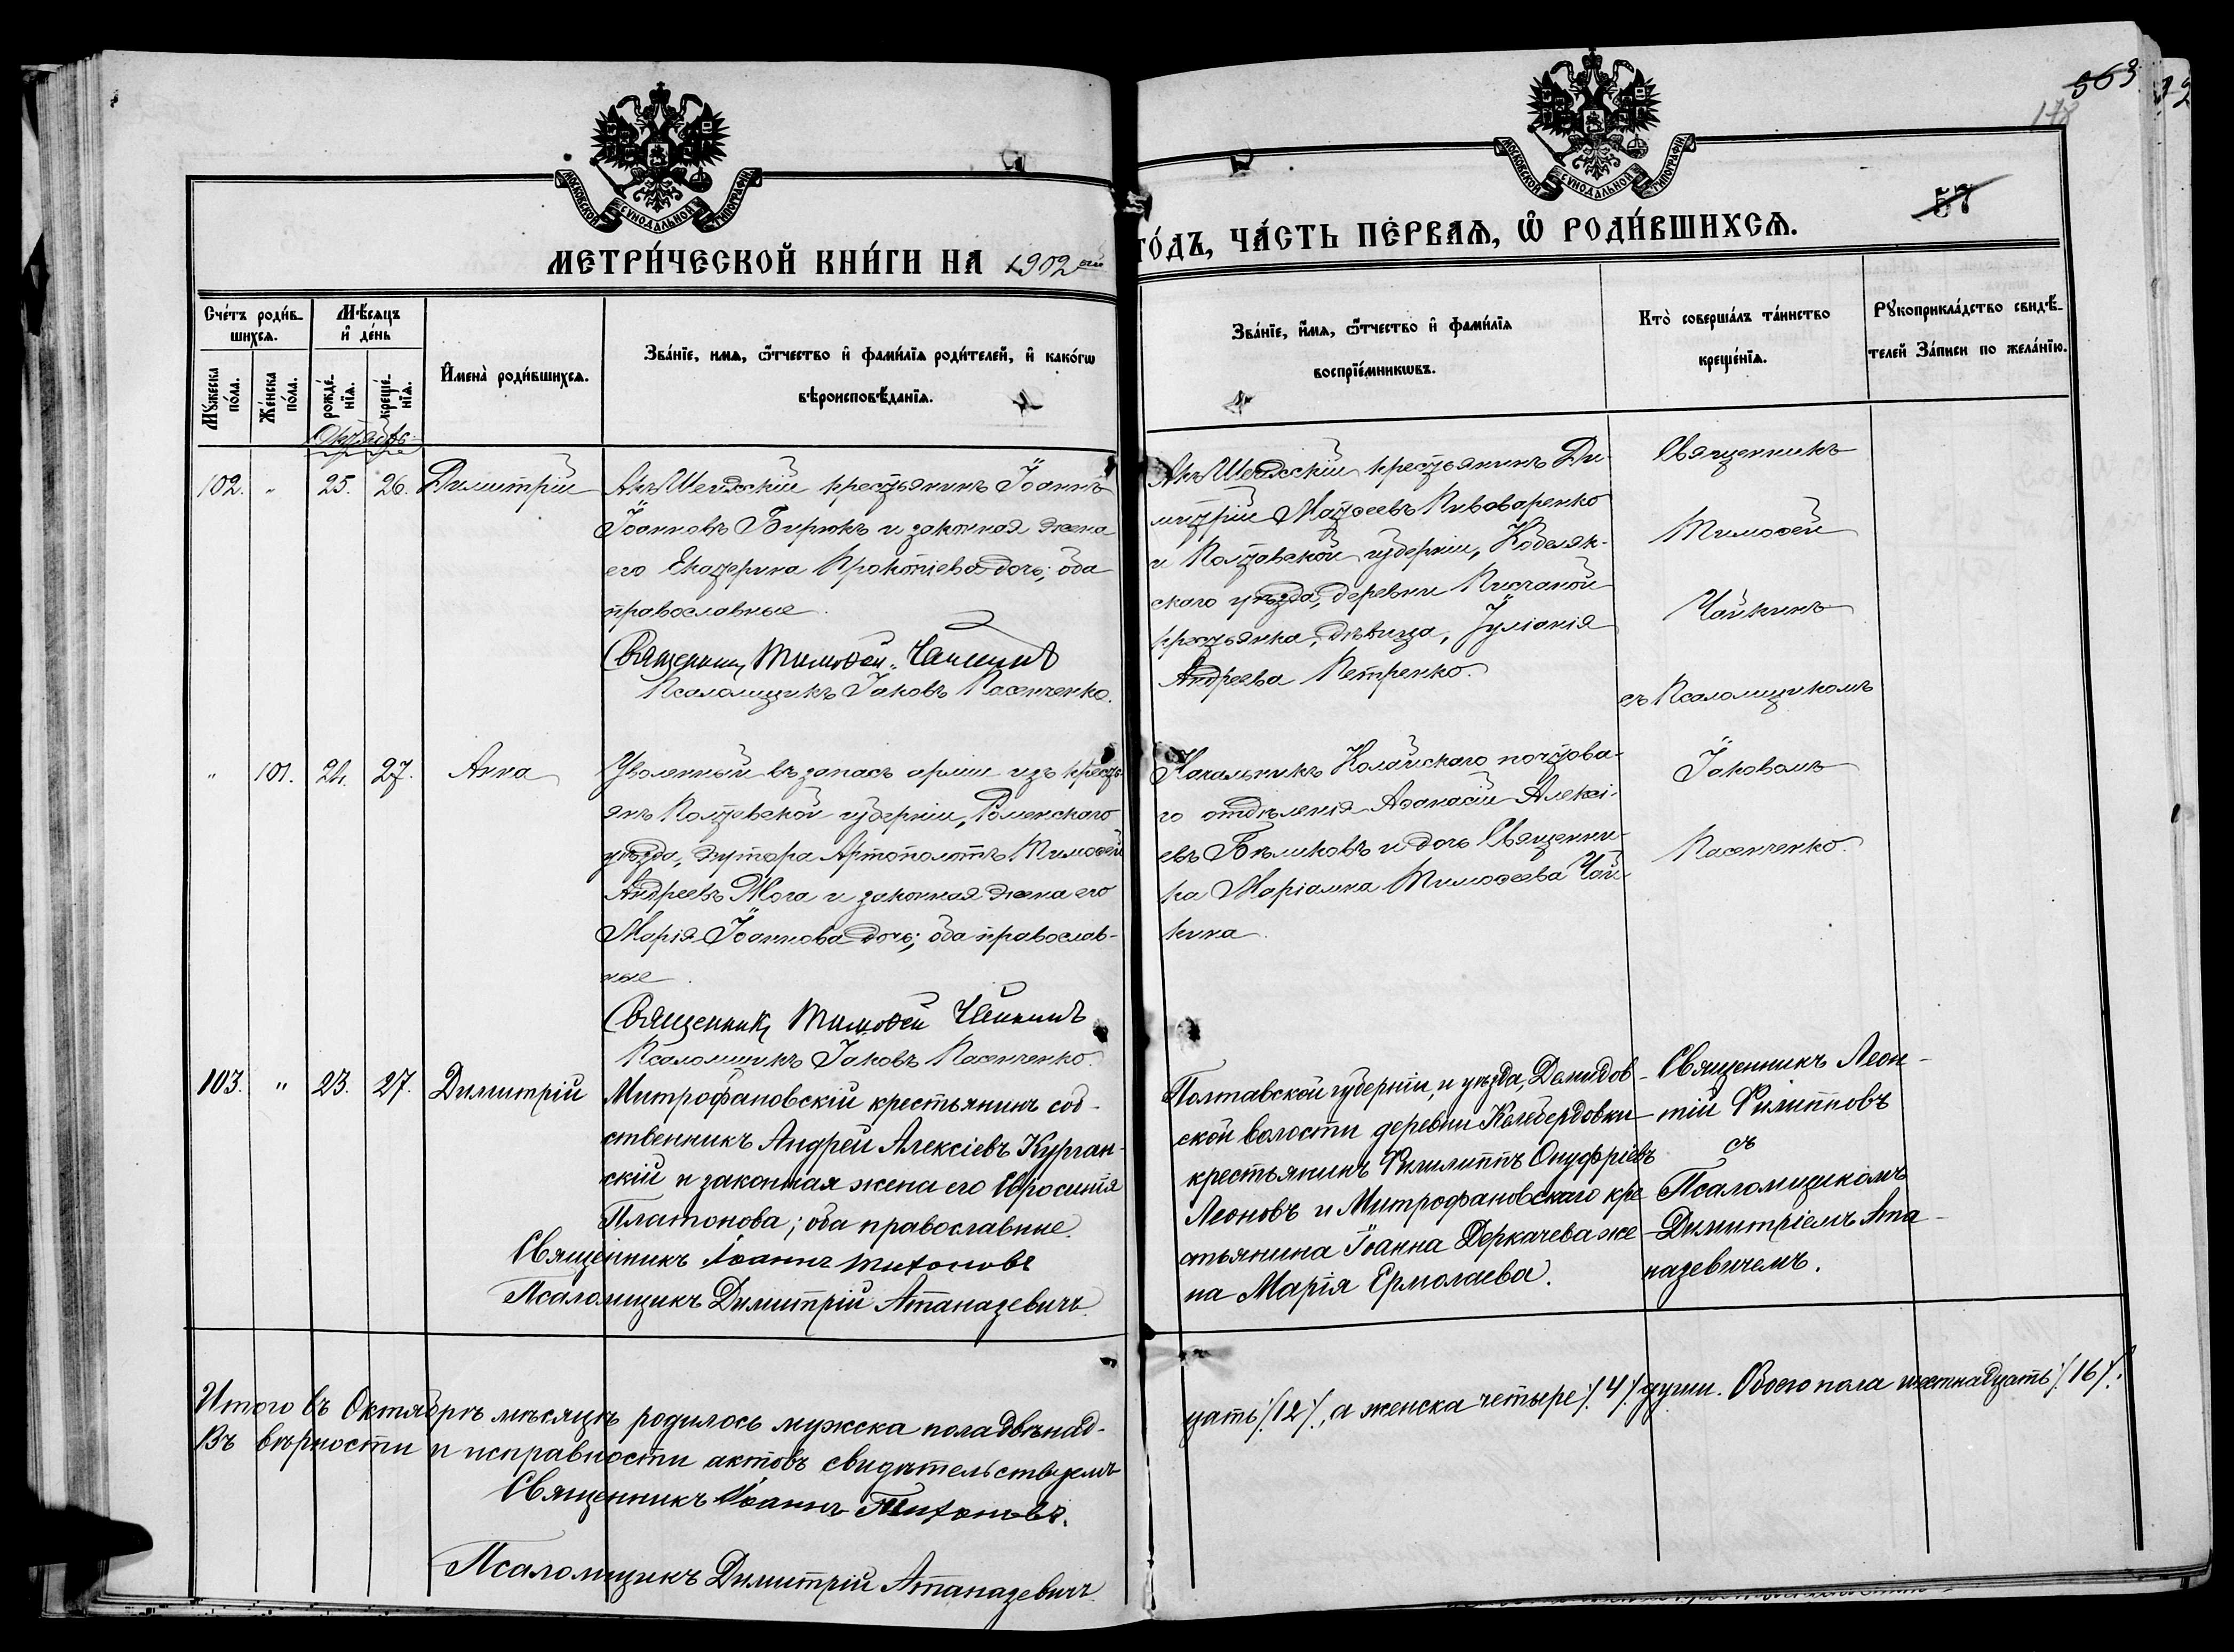 563
178
57
МОСКОВСКОЙ СѴНОДАЛЬНОЙ ТИПОГРАФІИ
МОСКОВСКОЙ СѴНОДАЛЬНОЙ ТИПОГРАФІИ
МЕТРИ́ЧЕСКОЙ КНИ́ГИ НА 1902 ый
ГО́ДЪ, ЧА́СТЬ ПЕ́РВАѦ, Ѡ҆ РОДИ́ВШИХСѦ.
Сче́тъ роди́в-
шихсѧ.
Мꙋ́жеска по́ла.
Же́нска по́ла.
Мѣ́сѧцъ
и҆ де́нь
рожде́-
нїѧ.
креще́-
нїѧ.
И҆мена̀ роди́вшихсѧ.
Зва́нїе, имѧ, ѻ҆́тчество и҆ фами́лїѧ роди́телей, и҆ како́гѡ
вѣроисповѣ́данїѧ.
Зва́нїе, и҆́мѧ, ѻ҆́тчество и҆ фами́лїѧ
воспрїе́мникѡвъ.
Кто̀ соверша́лъ та́инство
креще́нїѧ.
Рꙋкоприкла́дство свидѣ́-
телей За́писи по жела́нїю.
Октябрь
102. " 25. 26. Димитрій
Акъ Шеихскій крестьянинъ Іоаннъ
Іоанновъ Бирюкъ и законная жена
его Екатерина Прокопіева дочь; оба
православные.
Священникъ Тимоѳей Чайкинъ
Псаломщикъ Іаковъ Пасенченко.
Акъ Шеихскій крестьянинъ Ди-
митрій Матѳеевъ Пивоваренко
и Полтавской губерніи, Кобеляк-
скаго уѣзда, деревни Писчаной
крестьянка, дѣвица, Іуліанія
Андреева Петренко.
Священникъ
Тимоѳей
Чайкинъ
съ Псаломщикомъ
Іаковомъ
Пасенченко.
" 101. 24. 27. Анна
Уволенный въ запасъ арміи изъ кресть-
янъ Полтавской губерніи, Роменскаго
уѣзда, хутора Артополотъ Тимоѳей
Андреевъ Мога и законная жена его
Марія Іоаннова дочь; оба православ-
ные.
Священникъ Тимоѳей Чайкинъ
Псаломщикъ Іаковъ Пасенченко.
Начальникъ Колайскаго почтова-
го отдѣленія Аѳанасій Алексі-
евъ Бѣликовъ и дочь Священни-
ка Маріамна Тимоѳеева Чай-
кина.
103. " 23. 27. Димитрій
Митрофановскій крестьянинъ соб-
ственникъ Андрей Алексіевъ Курган-
скій и законная жена его Евросинія
Платонова; оба православные.
Священникъ Іоаннъ Тихоновъ
Псаломщикъ Димитрій Атаназевичъ
Полтавской губерніи, и уѣзда, Демидов-
ской волости деревни Келебердовки
крестьянинъ Филиппъ Онуфріевъ
Леоновъ и Митрофановскаго кре
стьянина Іоанна Деркачева же-
на Марія Ермолаева.
Священникъ Леон-
тій Филипповъ
съ
Псаломщикомъ
Димитріемъ Ата-
назевичемъ.
Итого въ Октябрѣ мѣсяцѣ родилось мужска пола двѣнад-
цать /12/, а женска четыре /4/ души. Обоего пола шестнадцать /16/.
Въ вѣрности и исправности актовъ свидѣтельствуемъ
Священникъ Іоаннъ Тихоновъ.
Псаломщикъ Димитрій Атаназевичъ